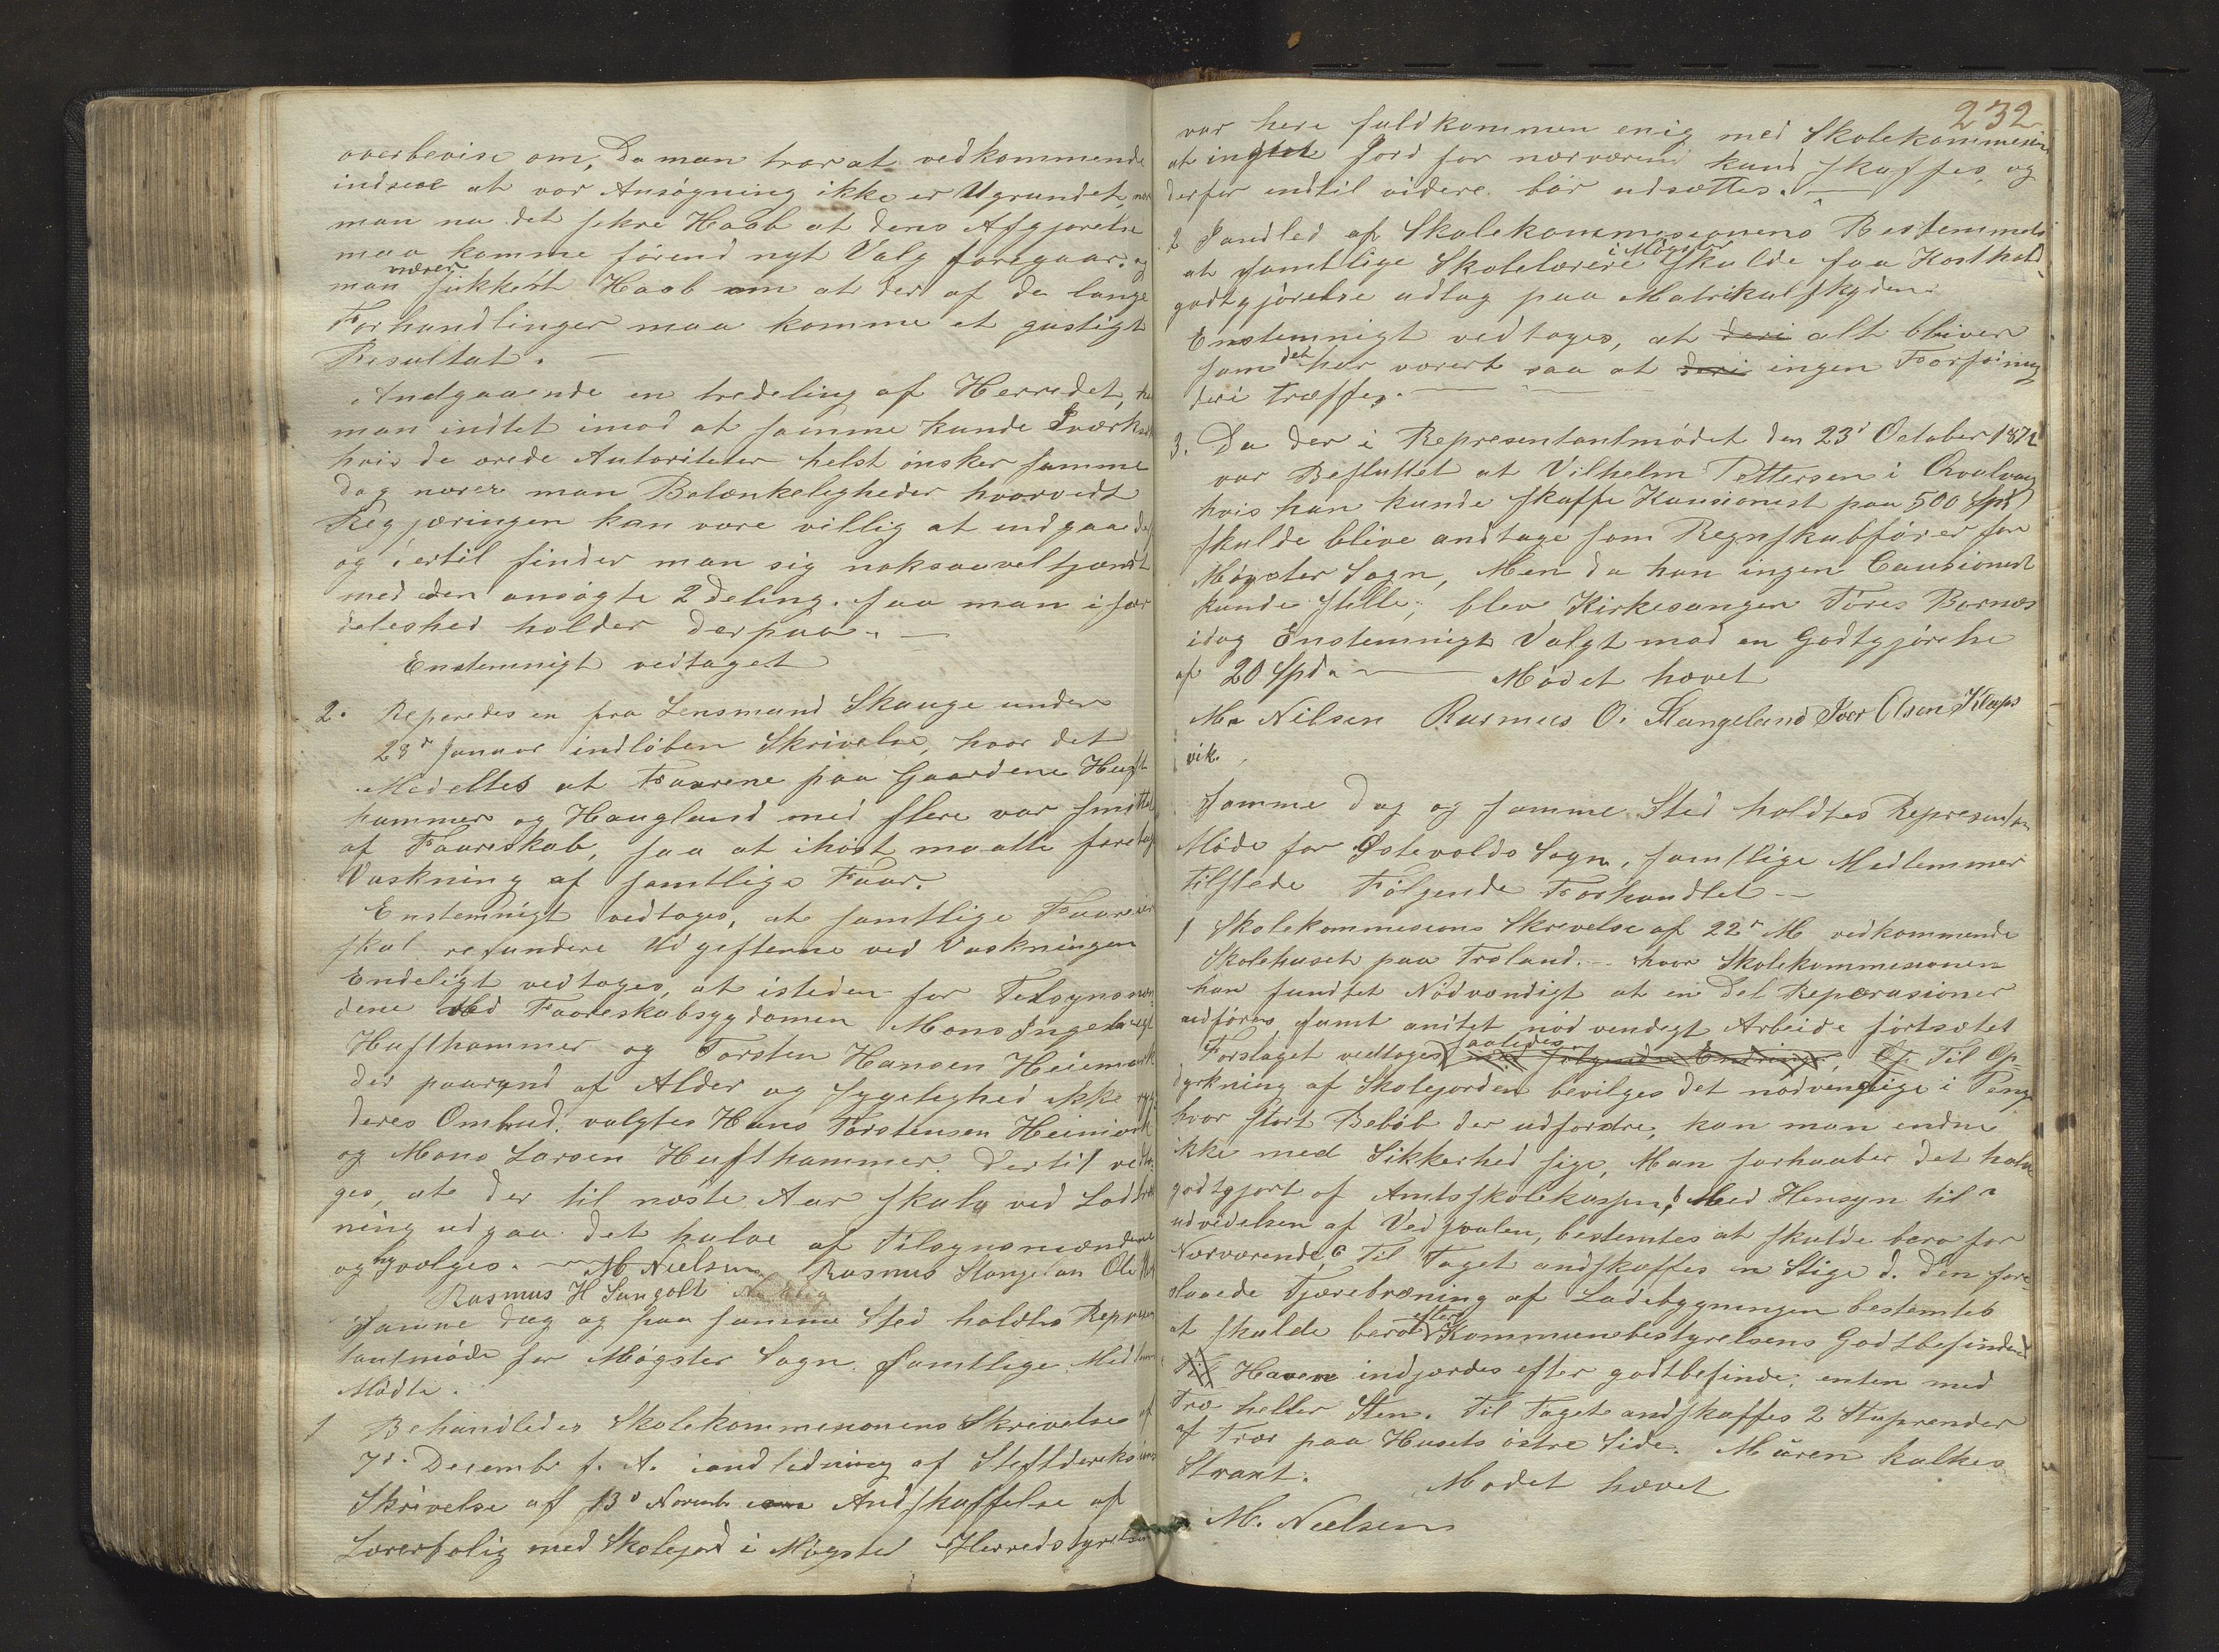 overbevise om, Da man tror at vedkommende
indseer at vor Ansøgning ikke er Ugrundet,
man nu det sikre Haab at dens Afgjørelse
maa komme förend nyt Valg foregaar. og
man nærer sikkert Haab om at der af de lange
Forhandlinger maa komme et gustigt
Resultat. —
Andgaaende en tredeling af Herredet,
man indtet imod at samme kunde Iværks
hvis de ærede Autoriteter helst önsker samme
dog nærer man Betænkeligheder hvorvidt
Regjæringen kan være villig at indgaa
og dertil finder man sig noksaavel tjændt
med den ansøgte 2 deling. saa man i sær
deleshed holder derpaa. —
Enstemnigt vedtaget
2. Refieredes en fra Lensmand Skauge under
28de Januar indlöben Skrivelse, hvor det
Medeltes at Faarene paa Gaardene Huft
hammer og Haugland med flere var smittet
af Faareskab, saa at ihöst maatte foretag
Vaskning af samtlige Faar.
Enstemnigt vedtoges, at samtlige Faareier
skal refundere Udgifterne ved Vaskningen
Endeligt vedtoges, at isteden for Tilsynsmæn
dene Ved Faareskabsygdomen Mons Ingebrigt
Hufthammer og Torsten Hansen Heiemark
der paagrund af Alder og Sygelighed ikke
deres Ombud. valgtes Hans Torstensen Heimark
og Mons Larsen Hufthammer. Dertil vedto
ges, at der til næste Aar skule ved Lodtræk
ning udgaa det halve af Tilsynsmændene
og ny vælges. — M Nielsen Rasmus Stangelan Ole
Rasmus H Sangolt
Samme Dag og paa samme Sted holdtes Represen
tantmöde for Møgster Sogn. Samtlige Medlem
Mödte.
1 Behandledes Skolekommesionens Skrivelse af
7de Decembr f. A. iandledning af Steftdereksions
Skrivelse af 13de Novembr Andskaffelse af
Lærerfolig med Skolejord i Møgster Herredstyrelsen
232
var heri fuldkommen enig med Skolekommesion
at ingtet Jord for nærværend kund skaffes, og
derfor indtil videre bör udsættes. —
2 I andled af Skolekommesionens Bestemmels
at samtlige Skolelærere i Møgster skulde faa Kosthold
godtgjörelse udlag paa Matrikulskylden
Enstemnigt vedtoges, at deri alt bliver
som det har været saa at deri ingen Forföining
deri træffes. —
3. Da der i Representantmödet den 23de October 1872
var Besluttet at Vilhelm Pettersen i Qvalvaag
hvis han kunde skaffe Kausionist paa 500 Spd
skulde blive andtage som Regnskabförer for
Møgster Sogn, Men da han ingen Causionist
kunde stille, blev Kirkesanger Töres Bornæs
idag Enstemnigt Valgt mod en Godtgjörelse
af 20 Spd. — Mödet hævet
M. Nilsen Rasmus O. Stangeland Iver Olsen Kleps
vik.
Samme Dag og samme Sted holdtes Representan
Möde for Østevolds Sogn. samtlige Medlemmer
tilstede Fölgende Forhandlet —
1 Skolekommesions Skrevelse af 22de M. vedkommende
Skolehuset paa Troland. — hvor Skolekommesionen
han fundtet Nödvendigt at en Del Reperasioner
udföres, samt andtet nödvendigt Arbeide fortsætet
Forslaget vedtoges saaledes med følgende Endringer, Til Op
dyrkning af Skolejorden bevilges det nödvendige i Penge
hvor stort Belöb der udfordre, kan man endnu
ikke med Sikkerhed sige, Man forhaaber det halve
godtgjort af Amtsskolekassen. b Med Hensyn til
udvidelsen af Vedskalen, bestemtes at skulde bero for
Nærværende, c Til Taget andskaffes en Stige d. Den fore
slaaede Tjærebræning af Ladebygningen bestemtes
at skulde bero efter Kommunebestyrelsens Godtbefindend
Haven indjærdes efter godtbefinde: enten med
Træ heller Sten. Til Taget andskaffes 2 Stuprender
af Træ paa Husets östre Side. Muren kalkes
Strakt. Mødet hævet
M. Nielsen